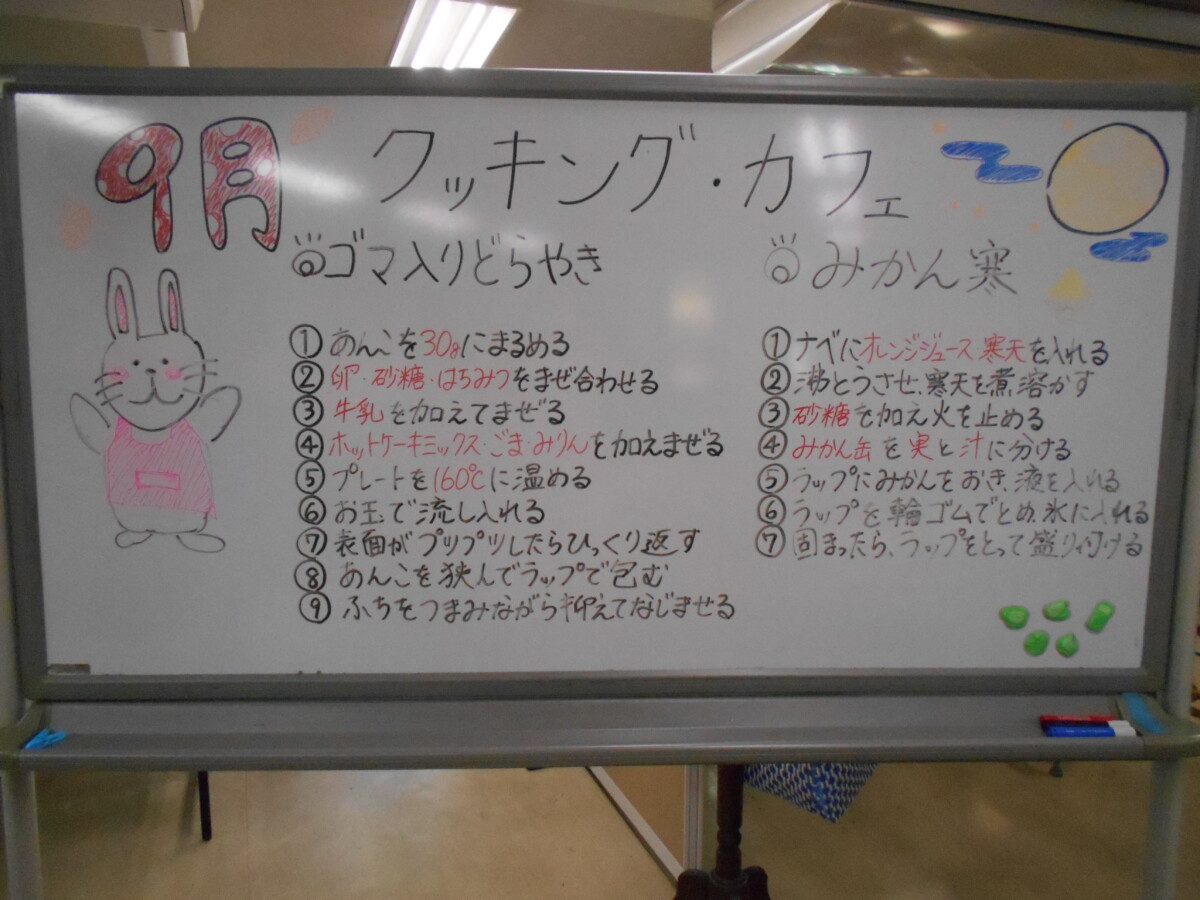 9月 クッキング・カフェ
ゴマ入りどらやき
① あんこを30gにまるめる
② 卵・砂糖・はちみつをまぜ合わせる
③ 牛乳を加えてまぜる
④ ホットケーキミックス・ごま・みりんを加えまぜる
⑤ プレートを160℃に温める
⑥ お玉で流し入れる
⑦ 表面がプツプツしたらひっくり返す
⑧ あんこを狭んでラップで包む
⑨ ふちをつまみながら抑えてなじませる
みかん寒
① ナベにオレンジジュース、寒天を入れる
② 沸とうさせ、寒天を煮溶かす
③ 砂糖を加え火を止める
④ みかん缶を実と汁に分ける
⑤ ラップにみかんをおき、液を入れる
⑥ ラップを輪ゴムでとめ、氷に入れる
⑦ 固まったら、ラップをとって盛り付ける